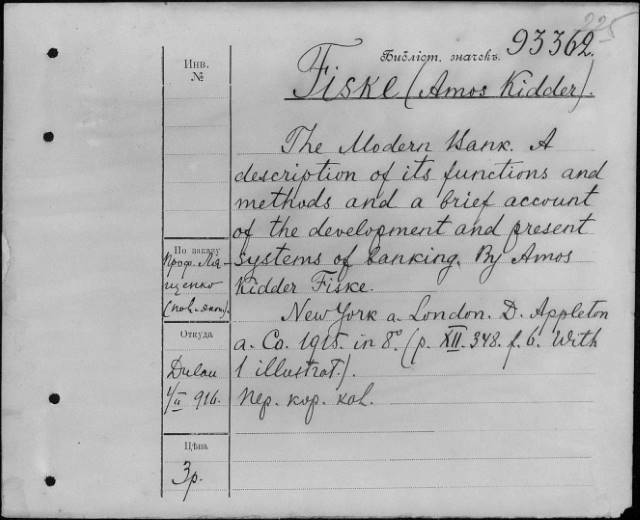 225
Библіот. значекъ. 93362.
Инв.
№
Fiske (Amos Kidder).
The Modern Bank. A
description of its functions and
methods and a brief account
of the development and present
systems of banking. By Amos
Kidder Fiske.
New York a. London. D. Appleton
a. Co. 1915. in 8º. (p. XII. 348. f. 6. With
1 illustrat.).
Пер. кор. кол.
По заказу
Проф. Ля-
щенко
Откуда
Dulau
1/II 916.
Цѣна
3р.